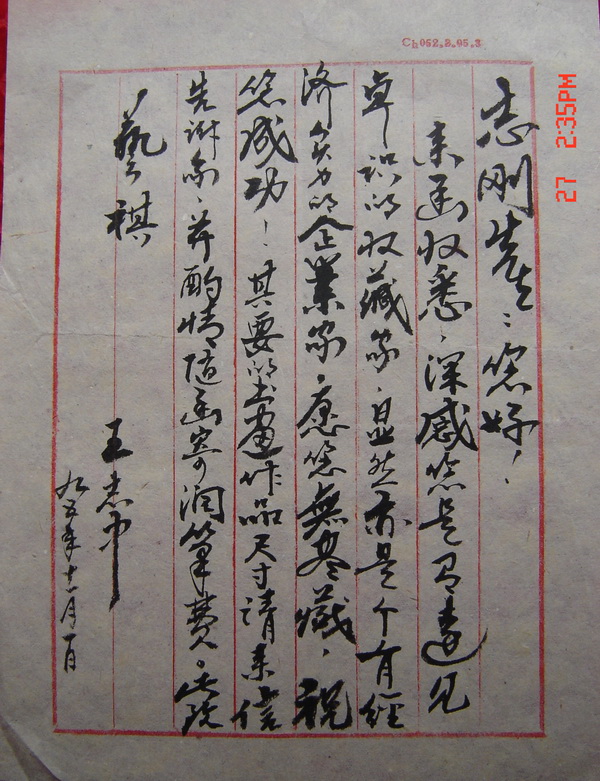 Ch052.8.05.3
27 2:35PM
志刚先生：您好！
来函收悉，深感您是有远见
卓识的收藏家，显然亦是个有经
济实力的企業家，愿您無尽藏，祝
您成功！其要的书画作品尺寸请来信
先谢, 并酌情随函寄润筆费。此致
藝祺
王志中
九五年十一月一日